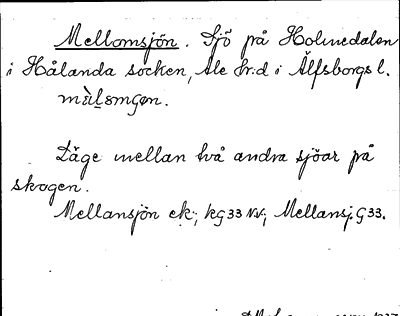 Mellomsjön. Sjö på Holmedalen
i Hålanda socken, Ale hr:d i Älfsborgs l.
Läge mellan två andra sjöar på
skogen.
Mellansjön ek; kg 33 NV; Mellansj. G 33.